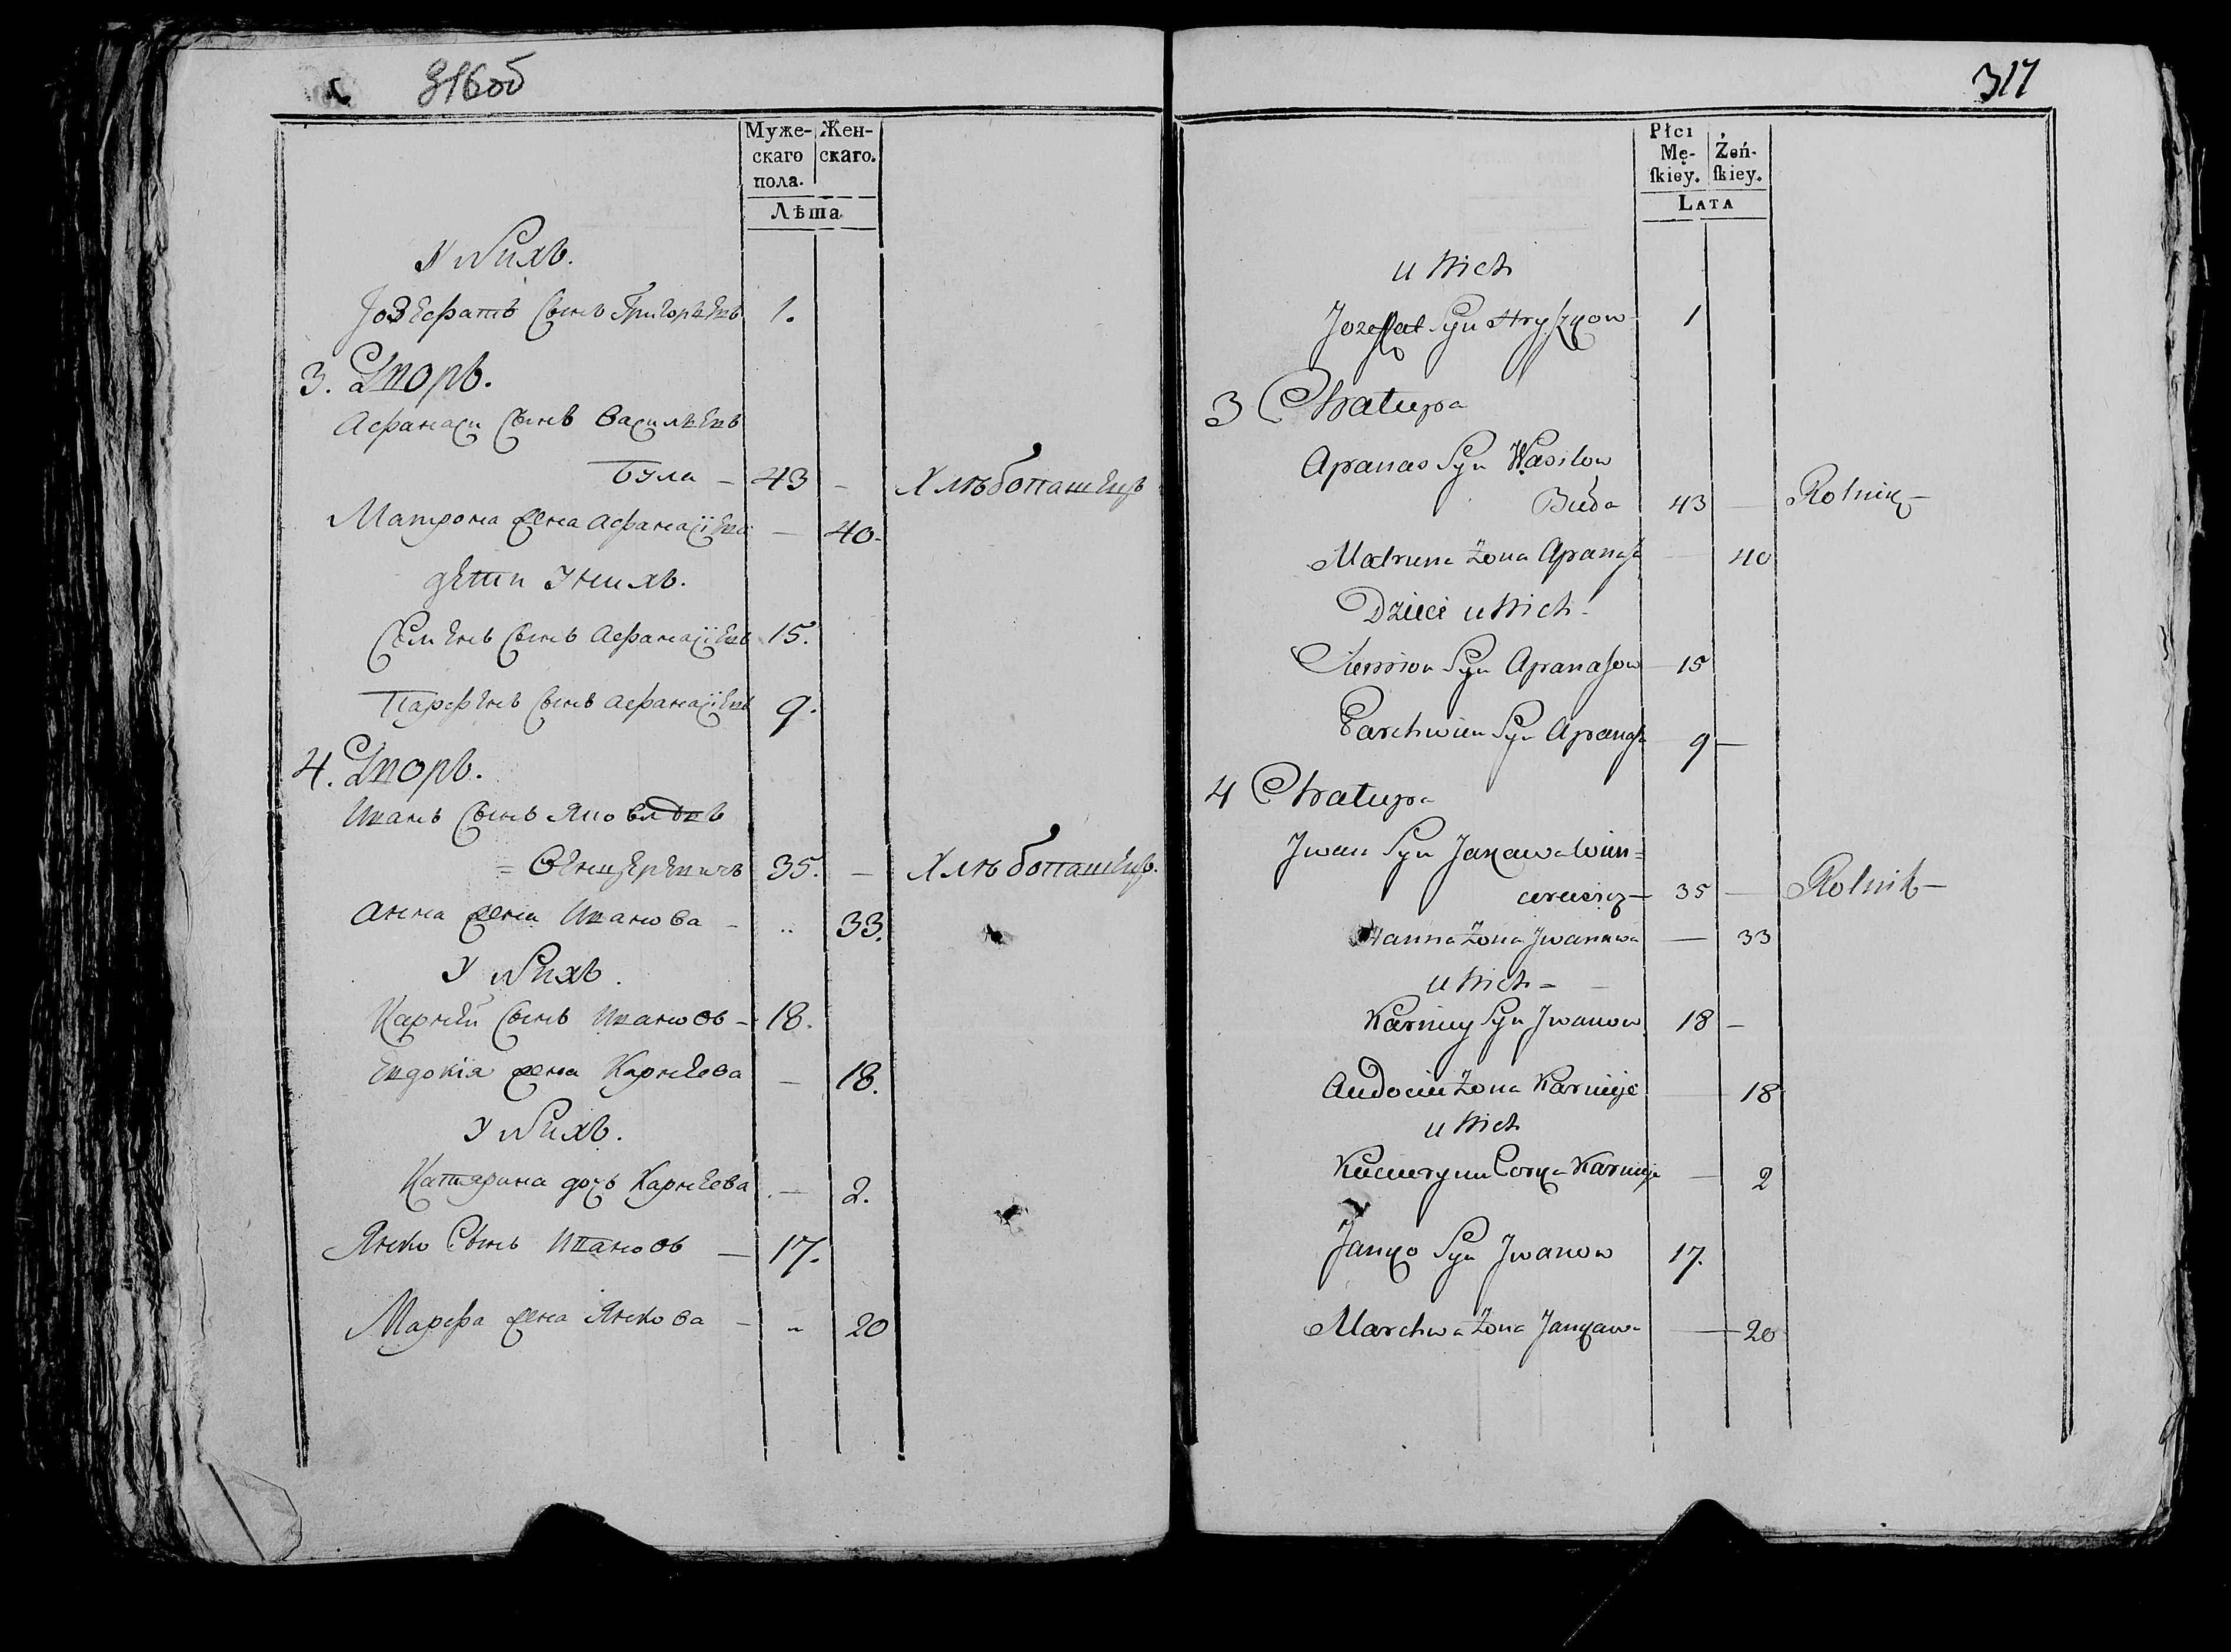 316об
Муже-
скаго
пола.
Жен-
скаго.
Лѣта
У Нихъ.
Јозефатъ Сынъ Григорьевъ 1.
3. Дворъ.
Афанаси Сынъ Васильевъ
Була - 43 - Хлѣбопашецъ
Матрона жена Афанасіева - 40.
дети У нихъ.
Семенъ Сынъ Афанасіевъ 15.
Парфенъ Сынъ Афанасіевъ 9.
4. Дворъ.
Иванъ Сынъ Яковлевъ
= Венцеревичъ 35. - Хлѣбопашецъ.
Анна жена Иванова - 33.
У Нихъ.
Карней Сынъ Ивановъ - 18.
Евдокія жена Карнеева - 18.
У Нихъ.
Катярина дочь Карнеева - 2.
Янко Сынъ Ивановъ - 17.
Марфа жена Янкова - 20
317
Płci
Mę-
ſkiey.
Żeń-
ſkiey.
Lata
u Nich
Jozefat Syn Hryszkow 1
3 Chałupa
Apanas Syn Wasilow
43 - Rolnik -
Matruna Żona Apanasa - 40
Dzieci u Nich -
Siemion Syn Apanasow - 15
Parchwien Syn Apanasa 9 -
4 Chałupa
Jwan Syn Jakawa Wien=
cerewicz - 35 - Rolnik -
Hanna Żona Jwanawa - 33
u Nich -
Karniey Syn Jwanow 18 -
Audocia Żona Karnieja - 18
u Nich
Kacieryna Corka Karnieja - 2
Janko Syn Jwanow 17.
Marchwa Żona Jankawa - 20